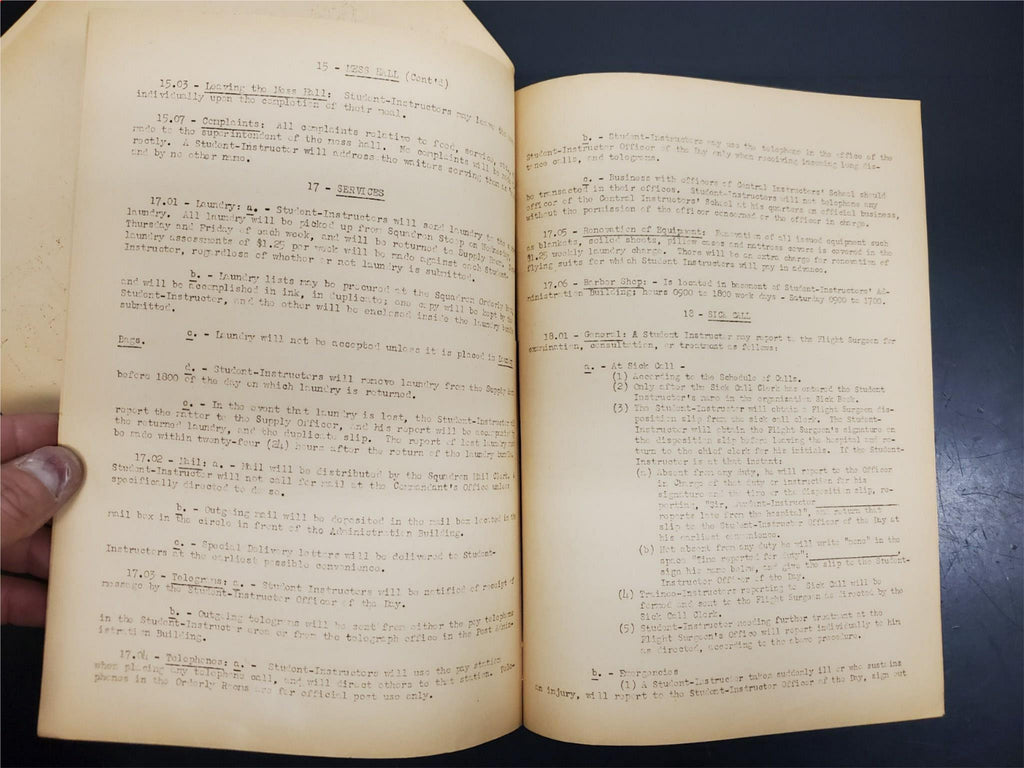 15 - MESS HALL (Cont'd)
15.03 - Leaving the Mess Hall: Student-Instructors may leave the
individually upon the completion of their meal.
15.07 - Complaints: All complaints relative to food, service,
made to the superintendent of the mess hall. No complaints will be made
rectly. A Student-Instructor will address the waiters serving them as
and by no other name.
17 - SERVICES
17.01 - Laundry: a. - Student-Instructors will send laundry to the
laundry. All laundry will be picked up from Squadron Stoop on Wednesday,
Thursday and Friday of each week, and will be returned to Supply Room.
laundry assessments of $1.25 per week will be made against each Student-
Instructor, regardless of whether or not laundry is submitted.
b. - Laundry lists may be procured at the Squadron Orderly Room,
and will be accomplished in ink, in duplicate; one copy will be kept by the
Student-Instructor, and the other will be enclosed inside the laundry bundle
submitted.
c. - Laundry will not be accepted unless it is placed in Laundry
Bags.
d. - Student-Instructors will remove laundry from the Supply
before 1800 of the day on which laundry is returned.
e. - In the event that laundry is lost, the Student-Instructor
report the matter to the Supply Officer, and his report will be accompanied
the returned laundry, and the duplicate slip. The report of lost laundry
be made within twenty-four (24) hours after the return of the laundry bundle.
17.02 - Mail: a. - Mail will be distributed by the Squadron Mail Clerk.
Student-Instructor will not call for mail at the Commandant's Office unless
specifically directed to do so.
b. - Outgoing mail will be deposited in the mail box located in the
mail box in the circle in front of the Administration Building.
c. - Special Delivery letters will be delivered to Student-
Instructors at the earliest possible convenience.
17.03 - Telegrams: a. - Student Instructors will be notified of receipt of
message by the Student-Instructor Officer of the Day.
b. - Outgoing telegrams will be sent from either the pay telephone
in the Student-Instructor area or from the telegraph office in the Post Admin-
istration Building.
17.04 - Telephones: a. - Student-Instructors will use the pay station
when placing any telephone call, and will direct others to that station. Tele-
phones in the Orderly Rooms are for official post use only.
b. - Student-Instructors may use the telephone in the office of the
Student-Instructor Officer of the Day only when receiving incoming long dis-
tance calls, and telegrams.
c. - Business with officers of Central Instructors' School should
be transacted in their offices. Student-Instructors will not telephone any
officer of the Central Instructors' School at his quarters on official business,
without the permission of the officer concerned or the officer in charge.
17.05 - Renovation of Equipment: Renovation of all issued equipment such
as blankets, soiled sheets, pillow cases and mattress covers is covered in the
$1.25 weekly laundry charge. There will be an extra charge for renovation of
flying suits for which Student Instructors will pay in advance.
17.06 - Barber Shop: - Is located in basement of Student-Instructors' Ad-
ministration Building; hours 0900 to 1800 week days - Saturday 0900 to 1700.
18 - SICK CALL
18.01 - General: A Student Instructor may report to the Flight Surgeon for
examination, consultation, or treatment as follows:
a. - At Sick Call -
(1) According to the Schedule of Calls.
(2) Only after the Sick Call Clerk has entered the Student
Instructor's name in the organization Sick Book.
(3) The Student-Instructor will obtain a Flight Surgeon dis-
position slip from the sick call clerk. The Student-
Instructor will obtain the Flight Surgeon's signature on
the disposition slip before leaving the hospital and re-
turn to the chief clerk for his initials. If the Student-
Instructor is at that instant:
(a) Absent from any duty, he will report to the Officer
in Charge of that duty or instruction for his
signature and the time on the disposition slip, re-
porting, "Sir, Student-Instructor
reports late from the hospital", and return that
slip to the Student-Instructor Officer of the Day at
his earliest convenience.
(b) Not absent from any duty he will write "none" in the
space "Time reported for duty":
sign his name below, and give the slip to the Student-
Instructor Officer of the Day.
(4) Trainee-Instructors reporting to Sick Call will be
formed and sent to the Flight Surgeon as directed by the
Sick Call Clerk.
(5) Student-Instructor needing further treatment at the
Flight Surgeon's Office will report individually to him
as directed, according to the above procedure.
b. - Emergencies
(1) A Student-Instructor taken suddenly ill or who sustains
an injury, will report to the Student-Instructor Officer of the Day, sign out